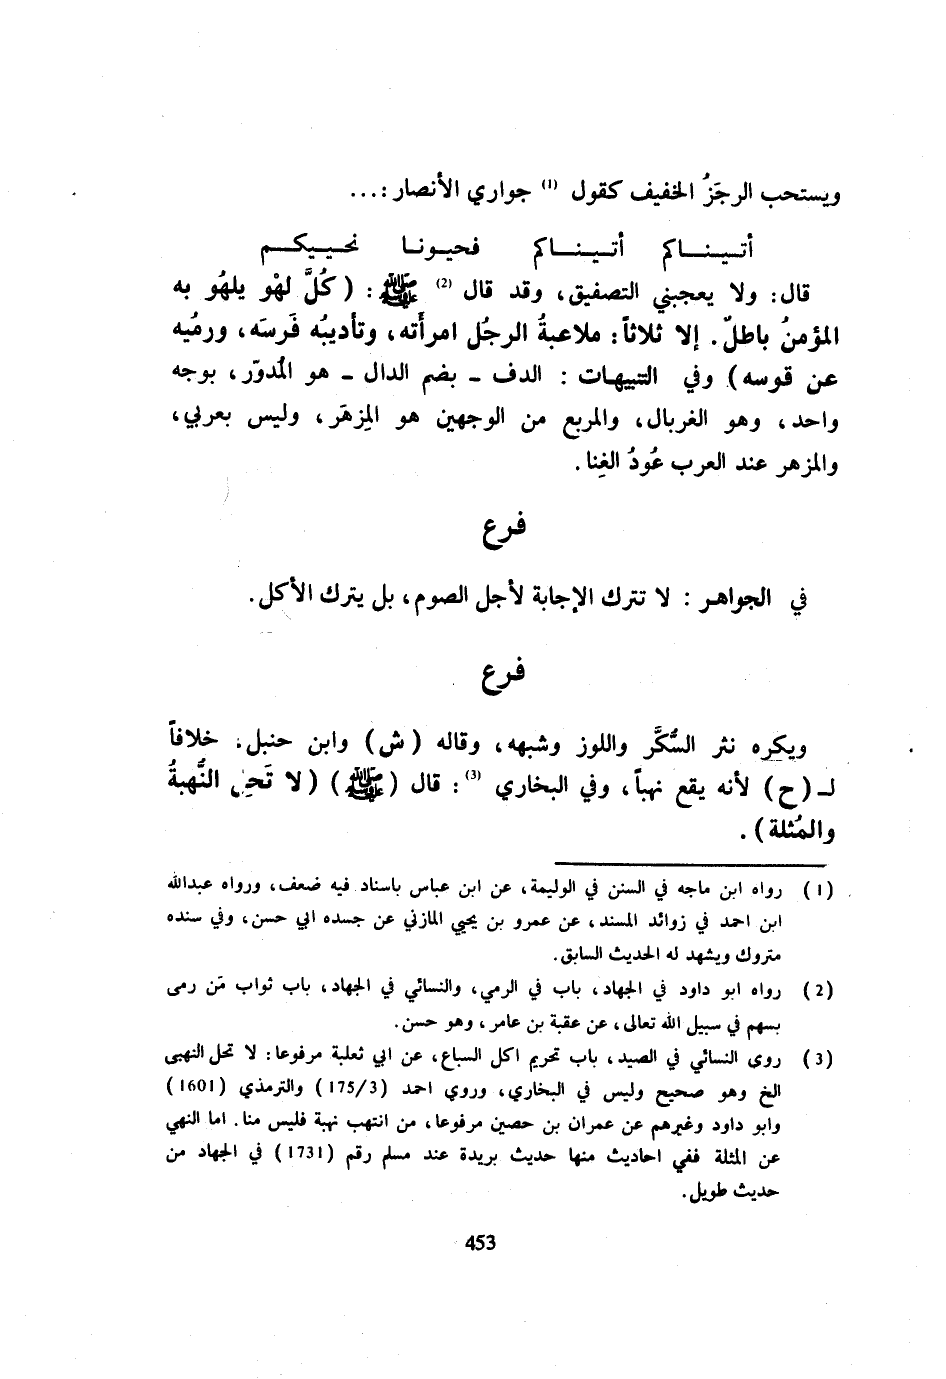 ويستحب الرجَزُ الخفيف كقول (1) جواري الأنصار :...
أتـيـنـــاكم أتـيـنـــاكم فحيـونـا نحـيـيكـــم
قال: ولا يعجبني التصفيق، وقد قال (2) ﷺ : ( كُلَّ لهْو يلهُو به
المؤمنُ باطلٌ. إلا ثلاثاً: ملاعبةُ الرجُل امرأَته، وتأديبُه فَرسَه، ورميُه
عن قوسه) وفي التنبيهات : الدف - بضم الدال - هو المُدوّر، بوجه
واحد، وهو الغربال، والمربع من الوجهين هو المِزهَر، وليس بعربي،
والمزهر عند العرب عُودُ الغِنا .
فرع
في الجواهر : لا تترك الإجابة لأجل الصوم، بل يترك الأكل.
فرع
ويكره نثر السُّكَّر واللوز وشبهه، وقاله (ش) وابن حنبل، خلافاً
لـ (ح) لأنه يقع نهباً، وفي البخاري (3) : قال (ﷺ) (لا تَحِل النُّهبةُ
والمُثلة) .
(1) رواه ابن ماجه في السنن في الوليمة، عن ابن عباس باسناد فيه ضعف، ورواه عبدالله
ابن احمد في زوائد المسند، عن عمرو بن يحيي المازني عن جسده ابي حسن، وفي سنده
متروك ويشهد له الحديث السابق.
(2) رواه ابو داود في الجهاد، باب في الرمي، والنسائي في الجهاد، باب ثواب مَن رمى
بسهم في سبيل الله تعالى، عن عقبة بن عامر، وهو حسن.
(3) روى النسائي في الصيد، باب تحريم اكل السباع، عن ابي ثعلبة مرفوعا: لا تحل النهبى
الخ وهو صحيح وليس في البخاري، وروي احمد (175/3) والترمذي (1601)
وابو داود وغيرهم عن عمران بن حصين مرفوعا، من انتهب نهبة فليس منا. اما النهي
عن المثلة ففي احاديث منها حديث بريدة عند مسلم رقم (1731) في الجهاد من
حديث طويل.
453